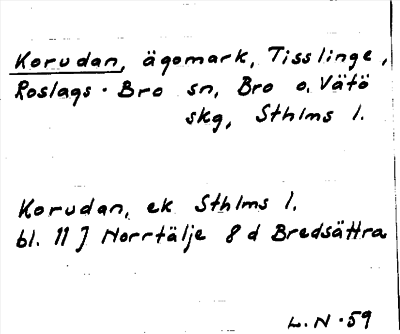 Korudan, ägomark, Tisslinge,
Roslags-Bro sn, Bro o. Vätö
skg, Sthlms l.
Korudan, ek Sthlms l.
bl. 11 J Norrtälje 8 d Bredsättra
L.N.59